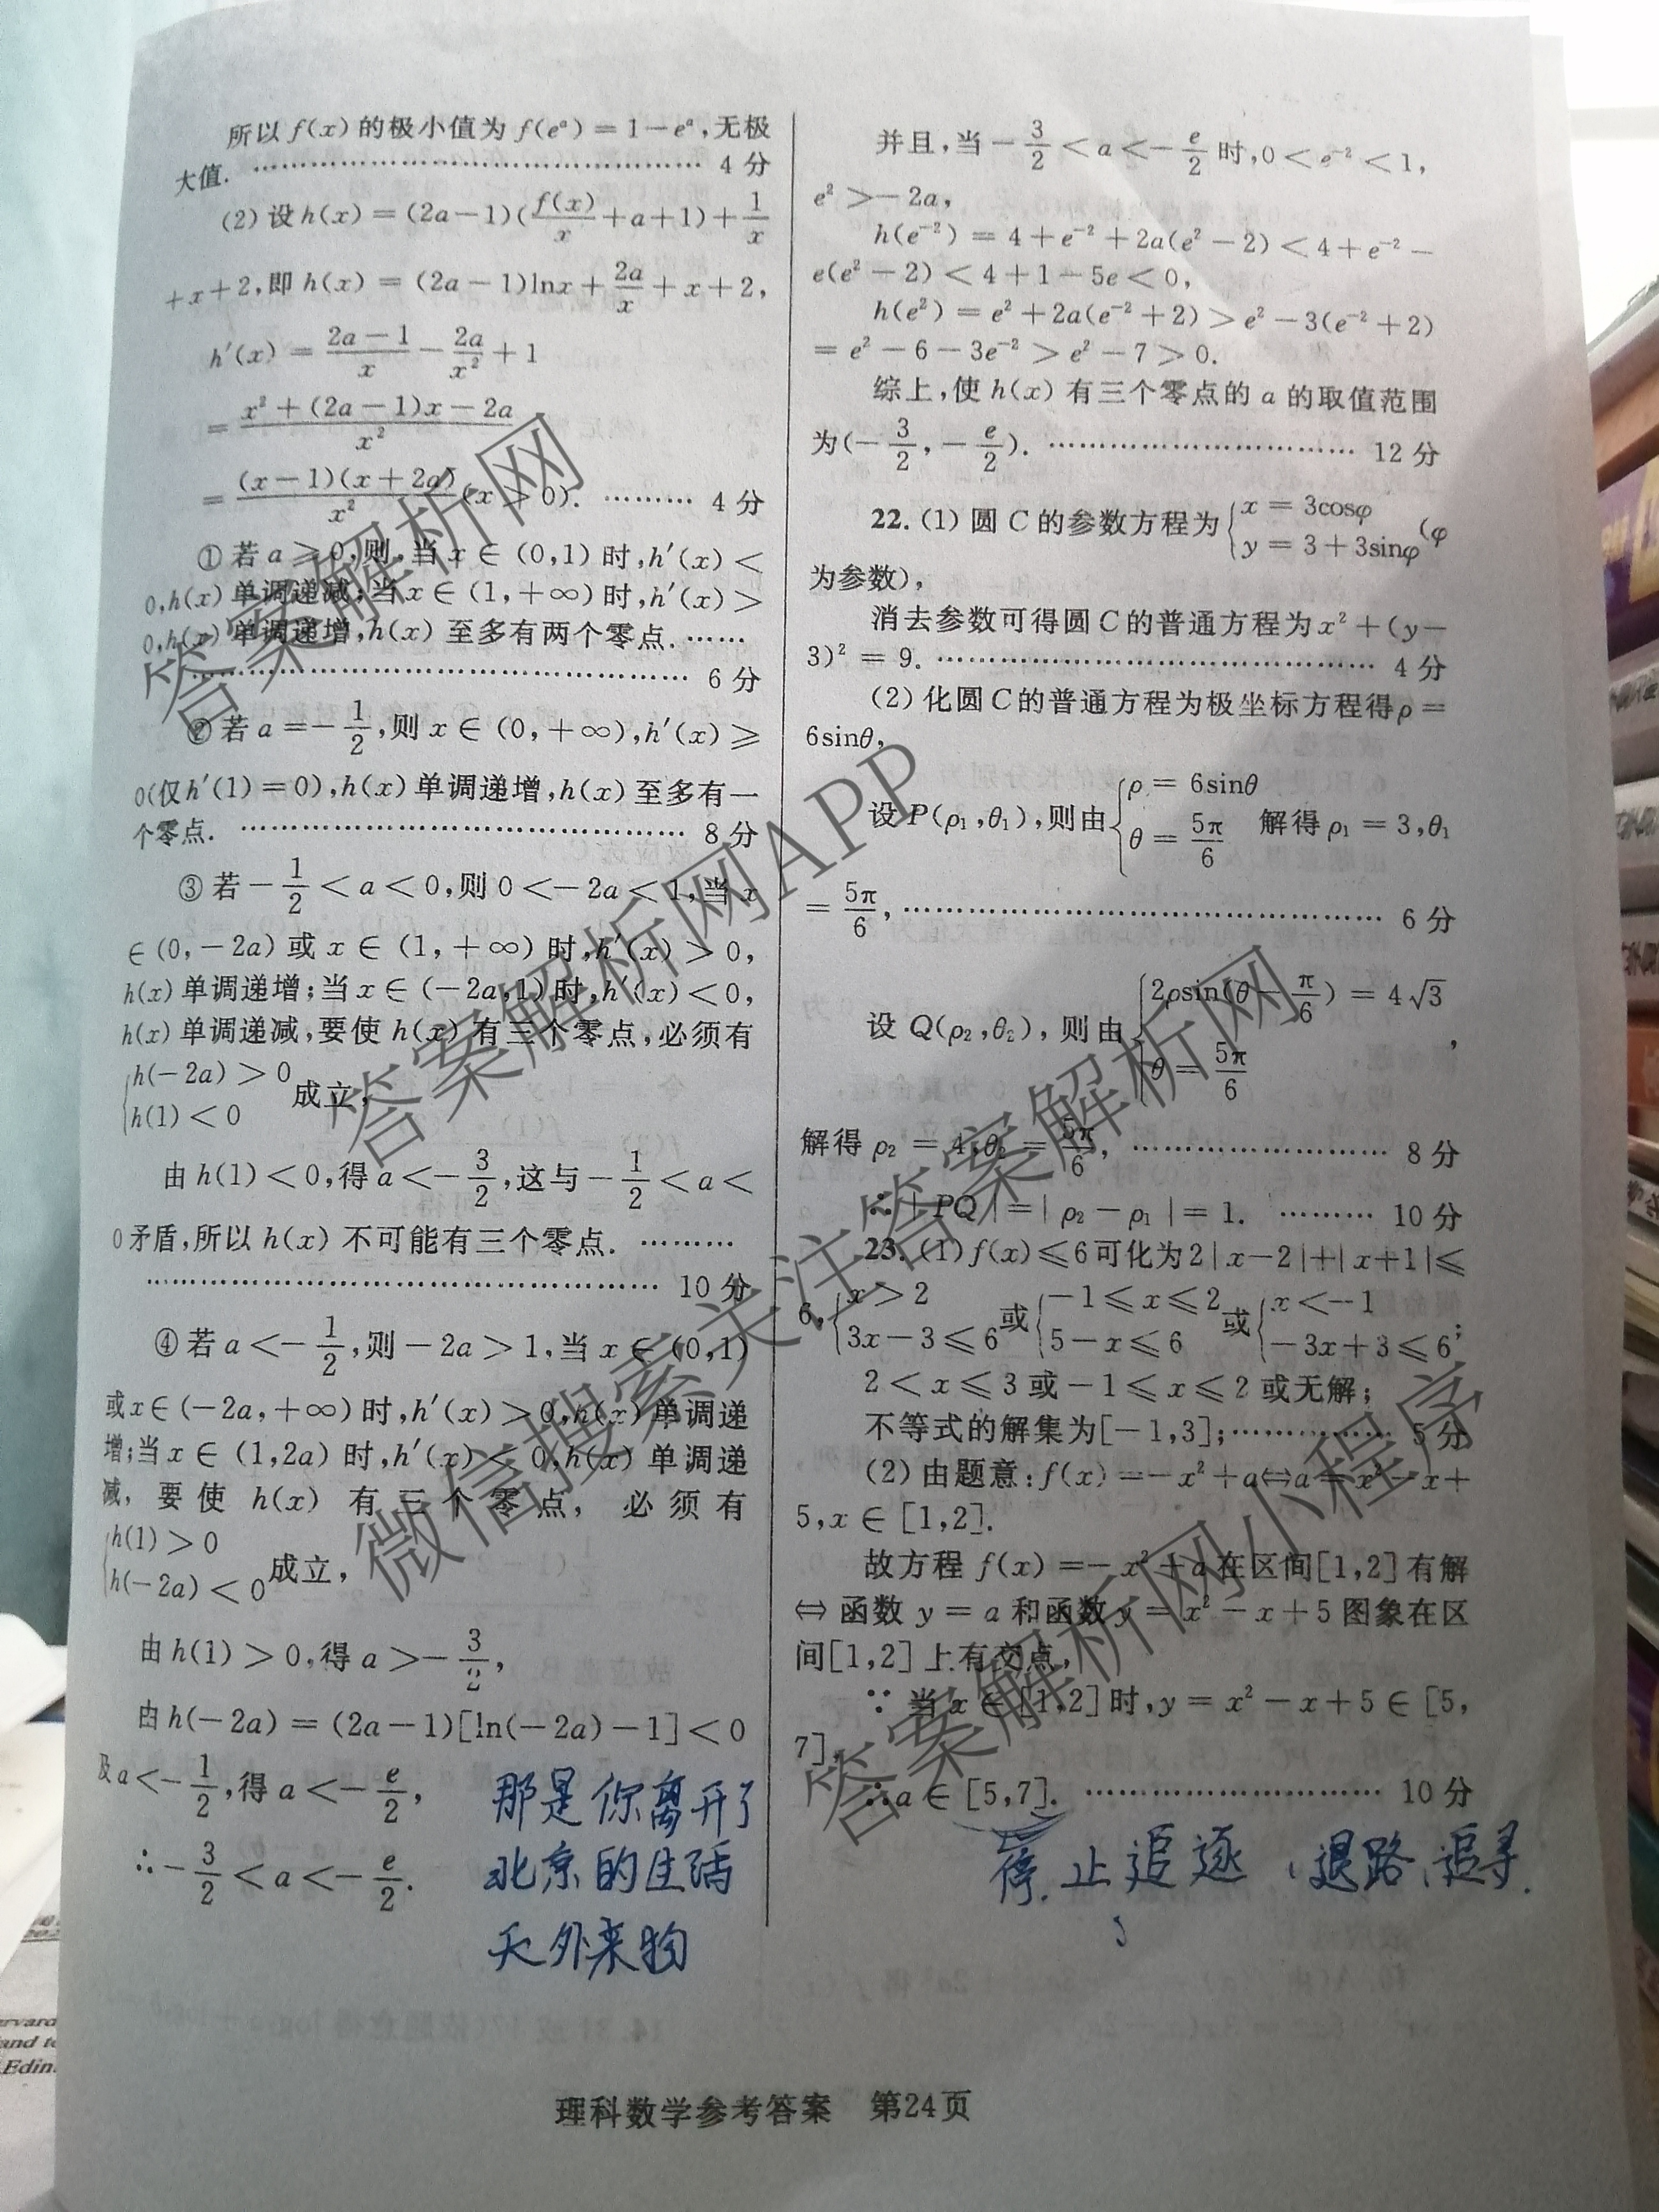 所以 f(x) 的极小值为 f(eᵃ) = 1 − eᵃ,无极
大值. ………………………………………… 4 分
(2) 设 h(x) = (2a−1)(f(x)/x + a + 1) + 1/x
+x+2,即 h(x) = (2a−1)lnx + 2a/x + x + 2,
h′(x) = (2a−1)/x − 2a/x² + 1
= (x² + (2a−1)x − 2a)/x²
= (x−1)(x+2a)/x² (x > 0). ……… 4 分
① 若 a ⩾ 0,则,当 x ∈ (0,1) 时,h′(x) <
0,h(x) 单调递减;当 x ∈ (1,+∞) 时,h′(x) >
0,h(x) 单调递增,h(x) 至多有两个零点. ……
………………………………………… 6 分
② 若 a = −1/2,则 x ∈ (0,+∞),h′(x) ⩾
0(仅 h′(1) = 0),h(x) 单调递增,h(x) 至多有一
个零点. ………………………………………… 8 分
③ 若 −1/2 < a < 0,则 0 < −2a < 1,当 x
∈ (0,−2a) 或 x ∈ (1,+∞) 时,h′(x) > 0,
h(x) 单调递增;当 x ∈ (−2a,1) 时,h′(x) < 0,
h(x) 单调递减,要使 h(x) 有三个零点,必须有
{h(−2a) > 0
h(1) < 0 成立,
由 h(1) < 0,得 a < −3/2,这与 −1/2 < a <
0 矛盾,所以 h(x) 不可能有三个零点. ………
………………………………………… 10 分
④ 若 a < −1/2,则 −2a > 1,当 x ∈ (0,1)
或 x ∈ (−2a,+∞) 时,h′(x) > 0,h(x) 单调递
增;当 x ∈ (1,2a) 时,h′(x) < 0,h(x) 单调递
减,要使 h(x) 有三个零点,必须有
{h(1) > 0
h(−2a) < 0 成立,
由 h(1) > 0,得 a > −3/2,
由 h(−2a) = (2a−1)[ln(−2a)−1] < 0
及 a < −1/2,得 a < −e/2,
∴ −3/2 < a < −e/2.
那是你离开了
北京的生活
天外来物
并且,当 −3/2 < a < −e/2 时,0 < e⁻² < 1,
e² > −2a,
h(e⁻²) = 4 + e⁻² + 2a(e² − 2) < 4 + e⁻² −
e(e² − 2) < 4 + 1 − 5e < 0,
h(e²) = e² + 2a(e⁻² + 2) > e² − 3(e⁻² + 2)
= e² − 6 − 3e⁻² > e² − 7 > 0.
综上,使 h(x) 有三个零点的 a 的取值范围
为 (−3/2, −e/2). ………………………… 12 分
22. (1) 圆 C 的参数方程为 {x = 3cosφ
y = 3 + 3sinφ (φ
为参数),
消去参数可得圆 C 的普通方程为 x² + (y−
3)² = 9. ………………………………………… 4 分
(2) 化圆 C 的普通方程为极坐标方程得 ρ =
6sinθ,
设 P(ρ₁,θ₁),则由 {ρ = 6sinθ
θ = 5π/6 解得 ρ₁ = 3,θ₁
= 5π/6, ………………………………………… 6 分
设 Q(ρ₂,θ₂),则由 {2ρsin(θ − π/6) = 4√3
θ = 5π/6 ,
解得 ρ₂ = 4,θ₂ = 5π/6, …………………… 8 分
∴ | PQ | = | ρ₂ − ρ₁ | = 1. ……… 10 分
23. (1) f(x) ⩽ 6 可化为 2|x−2|+|x+1| ⩽
6, {x > 2
3x−3 ⩽ 6 或 {−1 ⩽ x ⩽ 2
5−x ⩽ 6 或 {x < −1
−3x+3 ⩽ 6 ;
2 < x ⩽ 3 或 −1 ⩽ x ⩽ 2 或无解;
不等式的解集为 [−1,3]; …………… 5 分
(2) 由题意: f(x) = −x² + a ⇔ a = x² − x +
5,x ∈ [1,2].
故方程 f(x) = −x² + a 在区间 [1,2] 有解
⇔ 函数 y = a 和函数 y = x² − x + 5 图象在区
间 [1,2] 上有交点,
∵ 当 x ∈ [1,2] 时,y = x² − x + 5 ∈ [5,
7],
∴ a ∈ [5,7]. ………………………… 10 分
停.止追逐、退路、追寻.
理科数学参考答案 第24页
答案解析网
答案解析网APP
微信搜索关注答案解析网
答案解析网小程序
arvard
and to
Edin